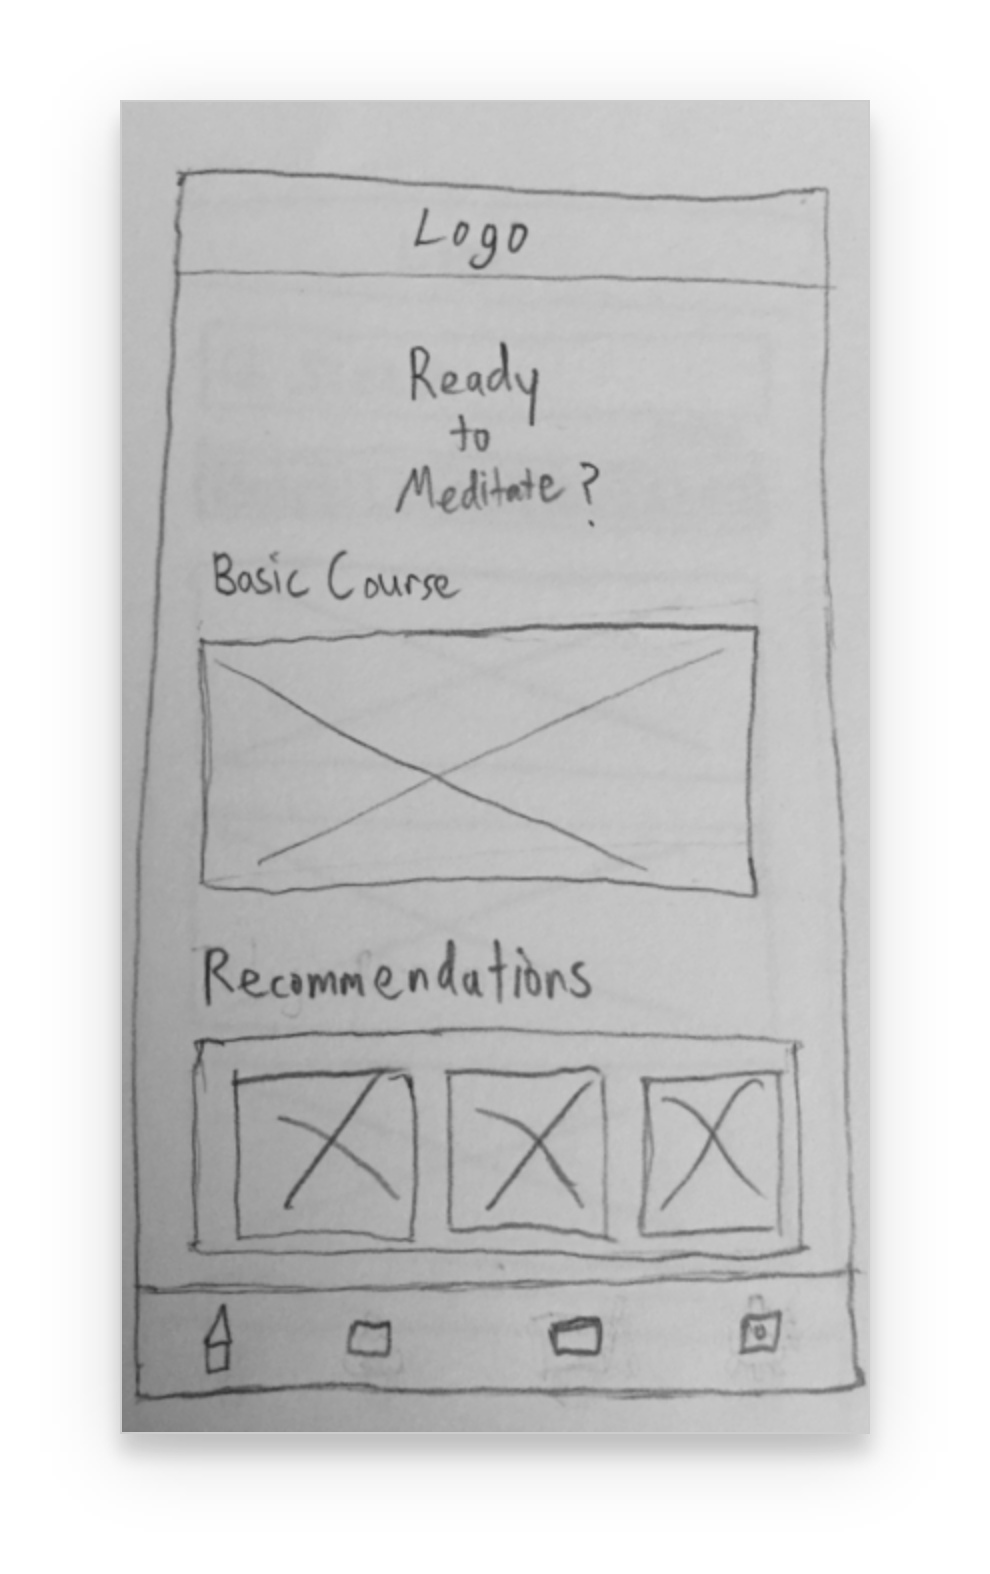 Logo
Ready
to
Meditate?
Basic Course
Recommendations